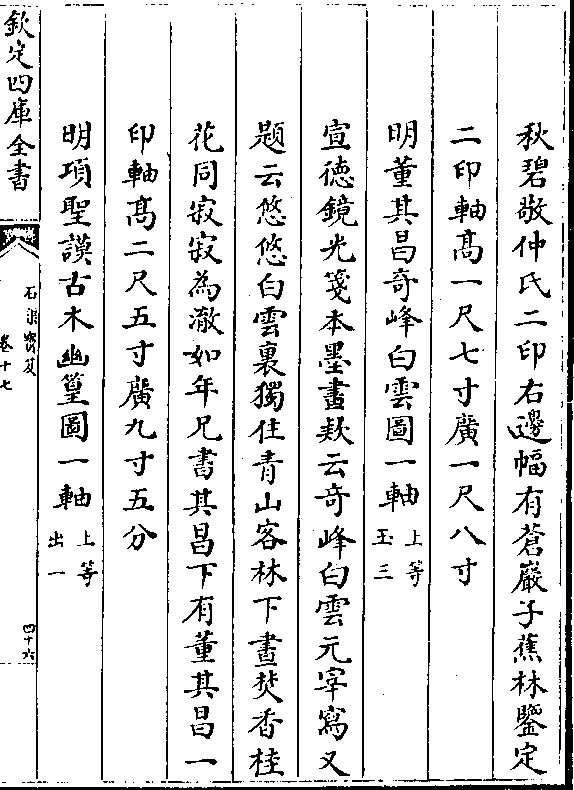 秋碧敬仲氏二印右邊幅有蒼巖子蕉林鑒定
二印軸髙一尺七寸廣一尺八寸
明董其昌奇峰白雲圖一軸 上等 玉三
宣徳鏡光箋本墨畫款云奇峰白雲元宰寫又
題云悠悠白雲裏獨住青山客林下晝焚香桂
花同寂寂為澈如年兄書其昌下有董其昌一
印軸髙二尺五寸廣九寸五分
明項聖謨古木幽篁圖一軸 上等 出一
欽定四庫全書
石渠寳笈
卷十七
四十六